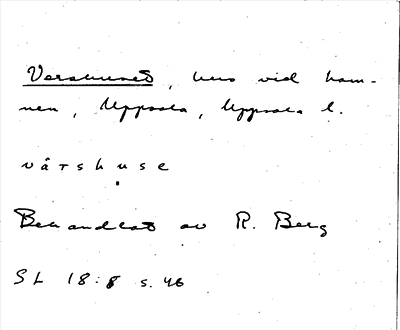 Vershuset, hus vid ham-
nen, Uppsala, Uppsala l.
vårshuse
Behandlat av R. Berg
SL 18:8 s. 46